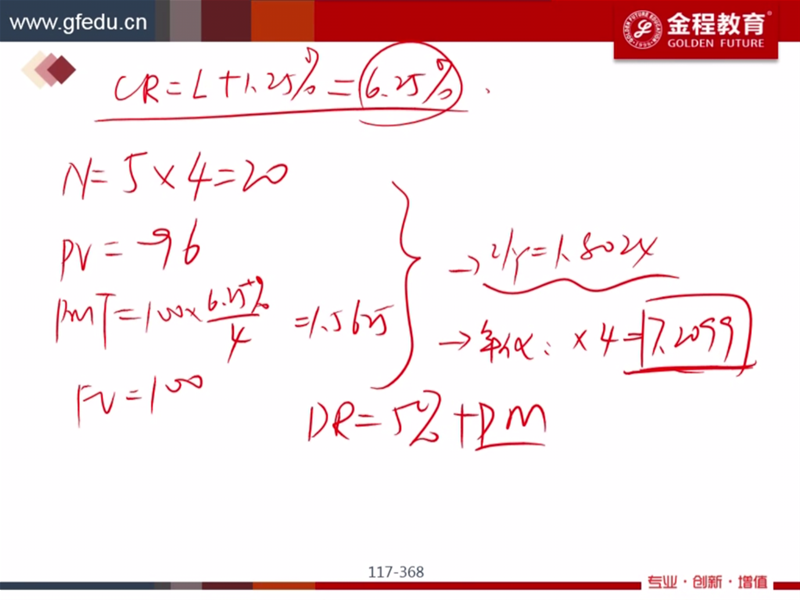 www.gfedu.cn
金程教育
GOLDEN FUTURE
CR = L + 1.25% = 6.25%
N = 5 × 4 = 20
PV = -96
PMT = 100 × 6.25%/4 = 1.5625
FV = 100
→ I/Y = 1.8024
→ 年化: × 4 = 7.2099
DR = 5% + DM
117-368
专业·创新·增值